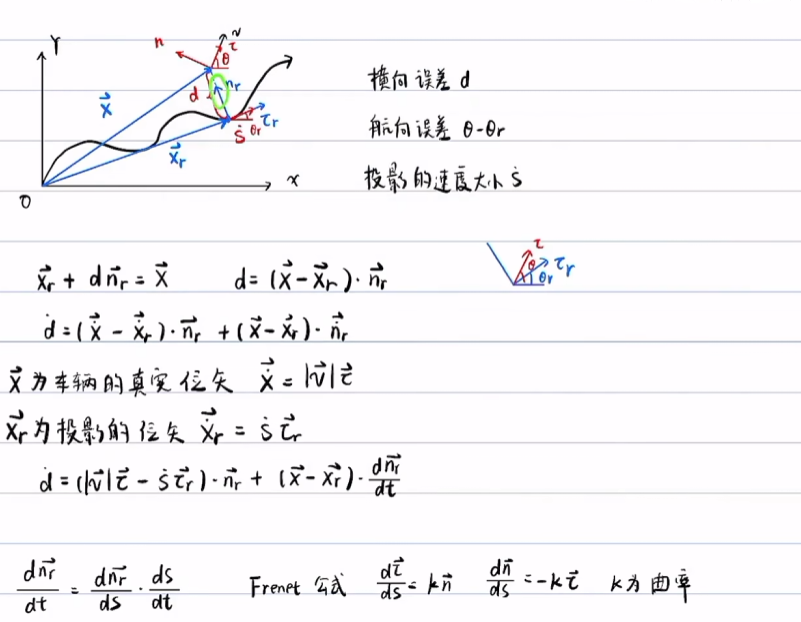 Y
n
N
τ
θ
d
n_r
\vec{X}
\vec{X_r}
\dot{S}
θ_r
τ_r
x
O
横向误差 d
航向误差 θ-θ_r
投影的速度大小 \dot{s}
τ
θ
τ_r
θ_r
\vec{X_r} + d\vec{n_r} = \vec{X}  d = (\vec{X} - \vec{X_r}) · \vec{n_r}
\dot{d} = (\dot{\vec{X}} - \dot{\vec{X_r}}) · \vec{n_r} + (\vec{X} - \vec{X_r}) · \dot{\vec{n_r}}
\vec{X} 为车辆的真实位矢 \dot{\vec{X}} = |\vec{v}|\vec{τ}
\vec{X_r} 为投影的位矢 \dot{\vec{X_r}} = \dot{s}\vec{τ_r}
\dot{d} = (|\vec{v}|\vec{τ} - \dot{s}\vec{τ_r}) · \vec{n_r} + (\vec{X} - \vec{X_r}) · \frac{d\vec{n_r}}{dt}
\frac{d\vec{n_r}}{dt} = \frac{d\vec{n_r}}{ds} · \frac{ds}{dt}  Frenet 公式  \frac{d\vec{τ}}{ds} = k\vec{n}  \frac{d\vec{n}}{ds} = -k\vec{τ}  k为曲率